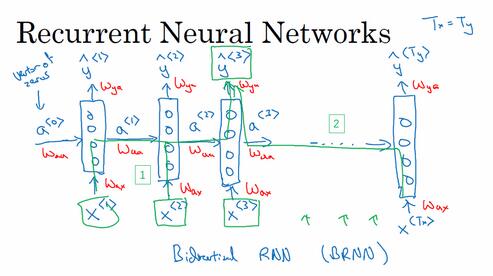 Recurrent Neural Networks
Tx = Ty
vector of zeros
ŷ<1> ŷ<2> ŷ<3> ŷ<Ty>
Wya Wya Wya Wya
a<0> a<1> a<2> a<3>
Waa Waa Waa Waa
1 2
Wax Wax Wax Wax
x<1> x<2> x<3> x<Tx>
Bidirectional RNN (BRNN)